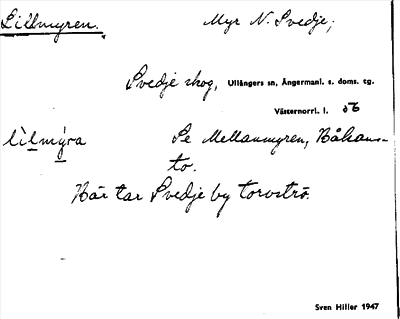 Lillmyren.
Myr N. Svedje;
Svedje skog, Ullångers sn, Ångermanl. s. doms. tg.
Västernorrl. l. 56
lìlmýra
Se Mellanmyren, Båhans-
to.
Här tar Svedje by torvströ.
Sven Hiller 1947